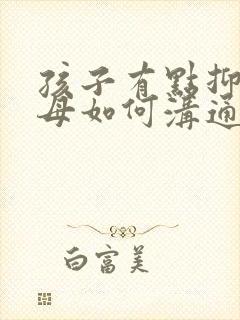 孩子有點抑
母如何溝通
白富美